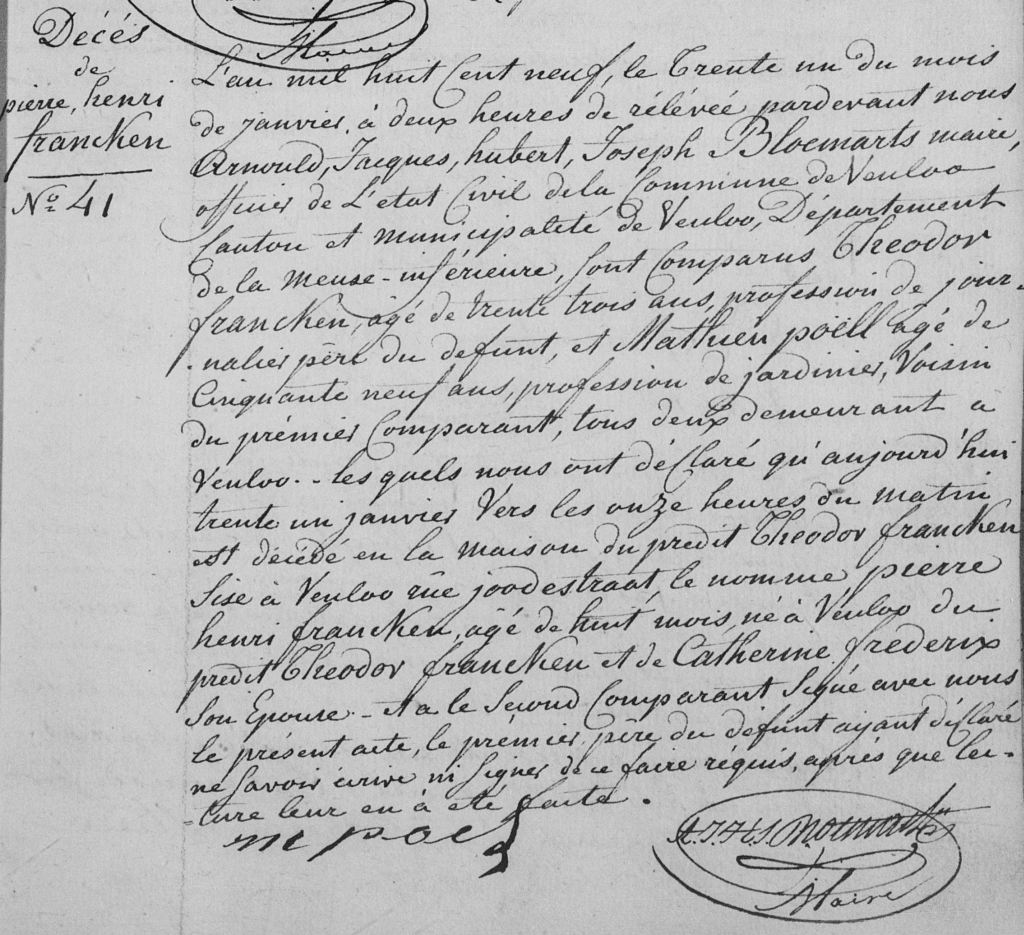 Maire
Décés
de
pierre, henri
francken
No. 41
L'an mil huit Cent neuf, le Trente un du mois
de janvier, à deux heures de rélévée pardevant nous
Arnould, Jacques, hubert, Joseph Bloemarts maire,
officier de L'etat Civil de la Commune de Venloo
Canton et municipalité de Venloo, Département
de la meuse-inférieure, sont Comparus Theodor
francken, agé de trente trois ans, profession de jour-
nalier père du defunt, et Mathieu poëll agé de
Cinquante neuf ans, profession de jardinier, Voisin
du prémier Comparant, tous deux demeurant a
Venloo. - les quels nous ont déClaré qu'aujourd'hui
trente un janvier Vers les onze heures du matin
est décédé en la maison du predit Theodor francken
Sise à Venloo rüe joodestraat, le nomme pierre
henri francken, agé de huit mois, né à Venloo du
predit Theodor francken et de Catherine frederix
Son Epouse - et a le Second Comparant Signé avec nous
le présent acte, le prémier, père du défunt ayant déClaré
ne Savoir écrire ni Signer de ce faire réquis, après que lec-
-ture leur en à été faite.
m poel
A.J.H.J. Bloemarts
Maire